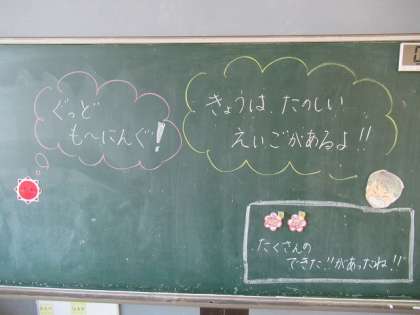 ぐっど
も〜にんぐ!
きょうは、たのしい
えいごがあるよ!!
たくさんの
"できた!!"があったね!!